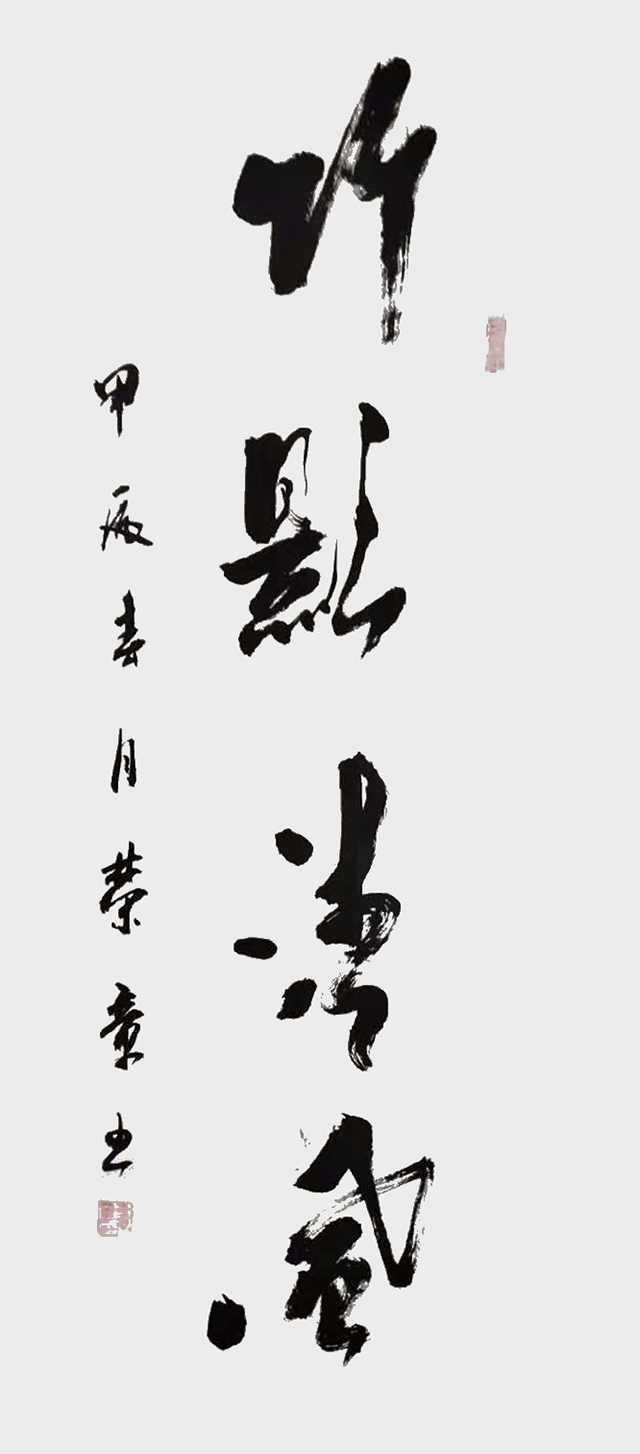 竹影清風
甲辰春月荣章书